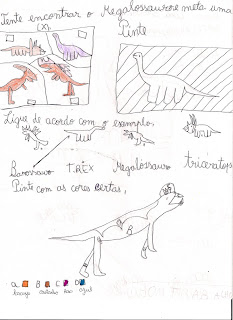 Tente encontrar o Megalossauro e meta uma
(X).
Pinte
Ligue de acordo com o exemplo.
Barossauro T.REX Megalossauro triceratops
Pinte com as cores certas.
A B C D
azul